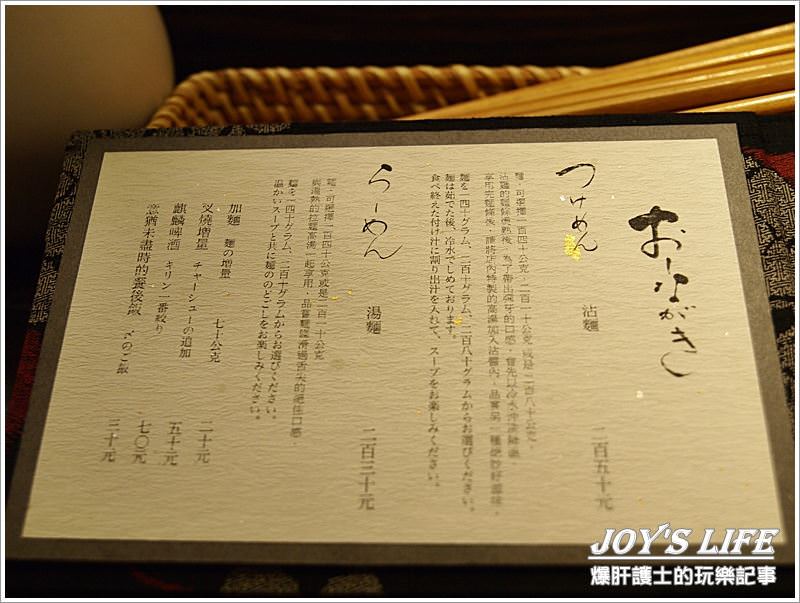 おしながき
つけめん 沾麵 二百五十元
麵,可選擇一百四十公克、二百一十公克、或是二百八十公克。
麺を一四十グラム、二百十グラム、二百八十グラムからお選びください。
麺は茹でた後、冷水でしめております。
食べ終えた付け汁に割り出汁を入れて、スープをお楽しみください。
らーめん 湯麵 二百三十元
麵,可選擇一百四十公克或是二百一十公克
與湯熱的拉麵高湯一起享用,品嘗麵體滑過舌尖的絕佳口感。
麺を一四十グラム、二百十グラムからお選びください。
温かいスープと共に麺ののどごしをお楽しみください。
加麵 麺の増量 七十公克 二十元
叉燒增量 チャーシューの追加 五十元
麒麟啤酒 キリン一番絞り 七〇元
意猶未盡時的餐後飯 〆のご飯 三十元
JOY'S LIFE
爆肝護士的玩樂記事